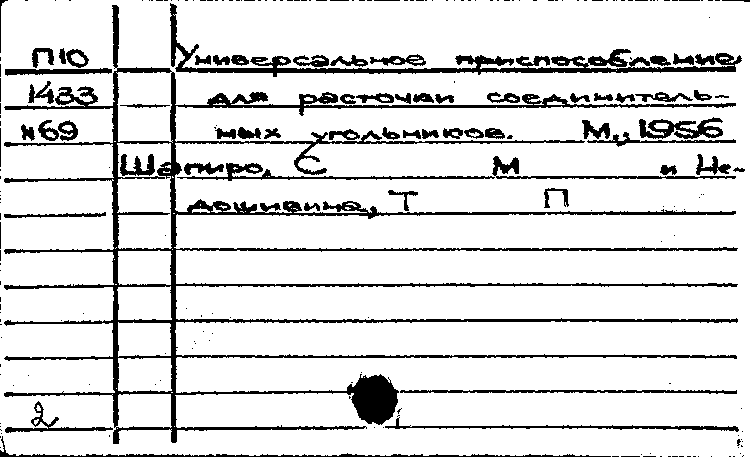 П10 Универсальное приспособление
1433 для расточки соединитель-
№69 ных угольников. М., 1956
Шапиро, С М и Не-
дошивина, Т П
2